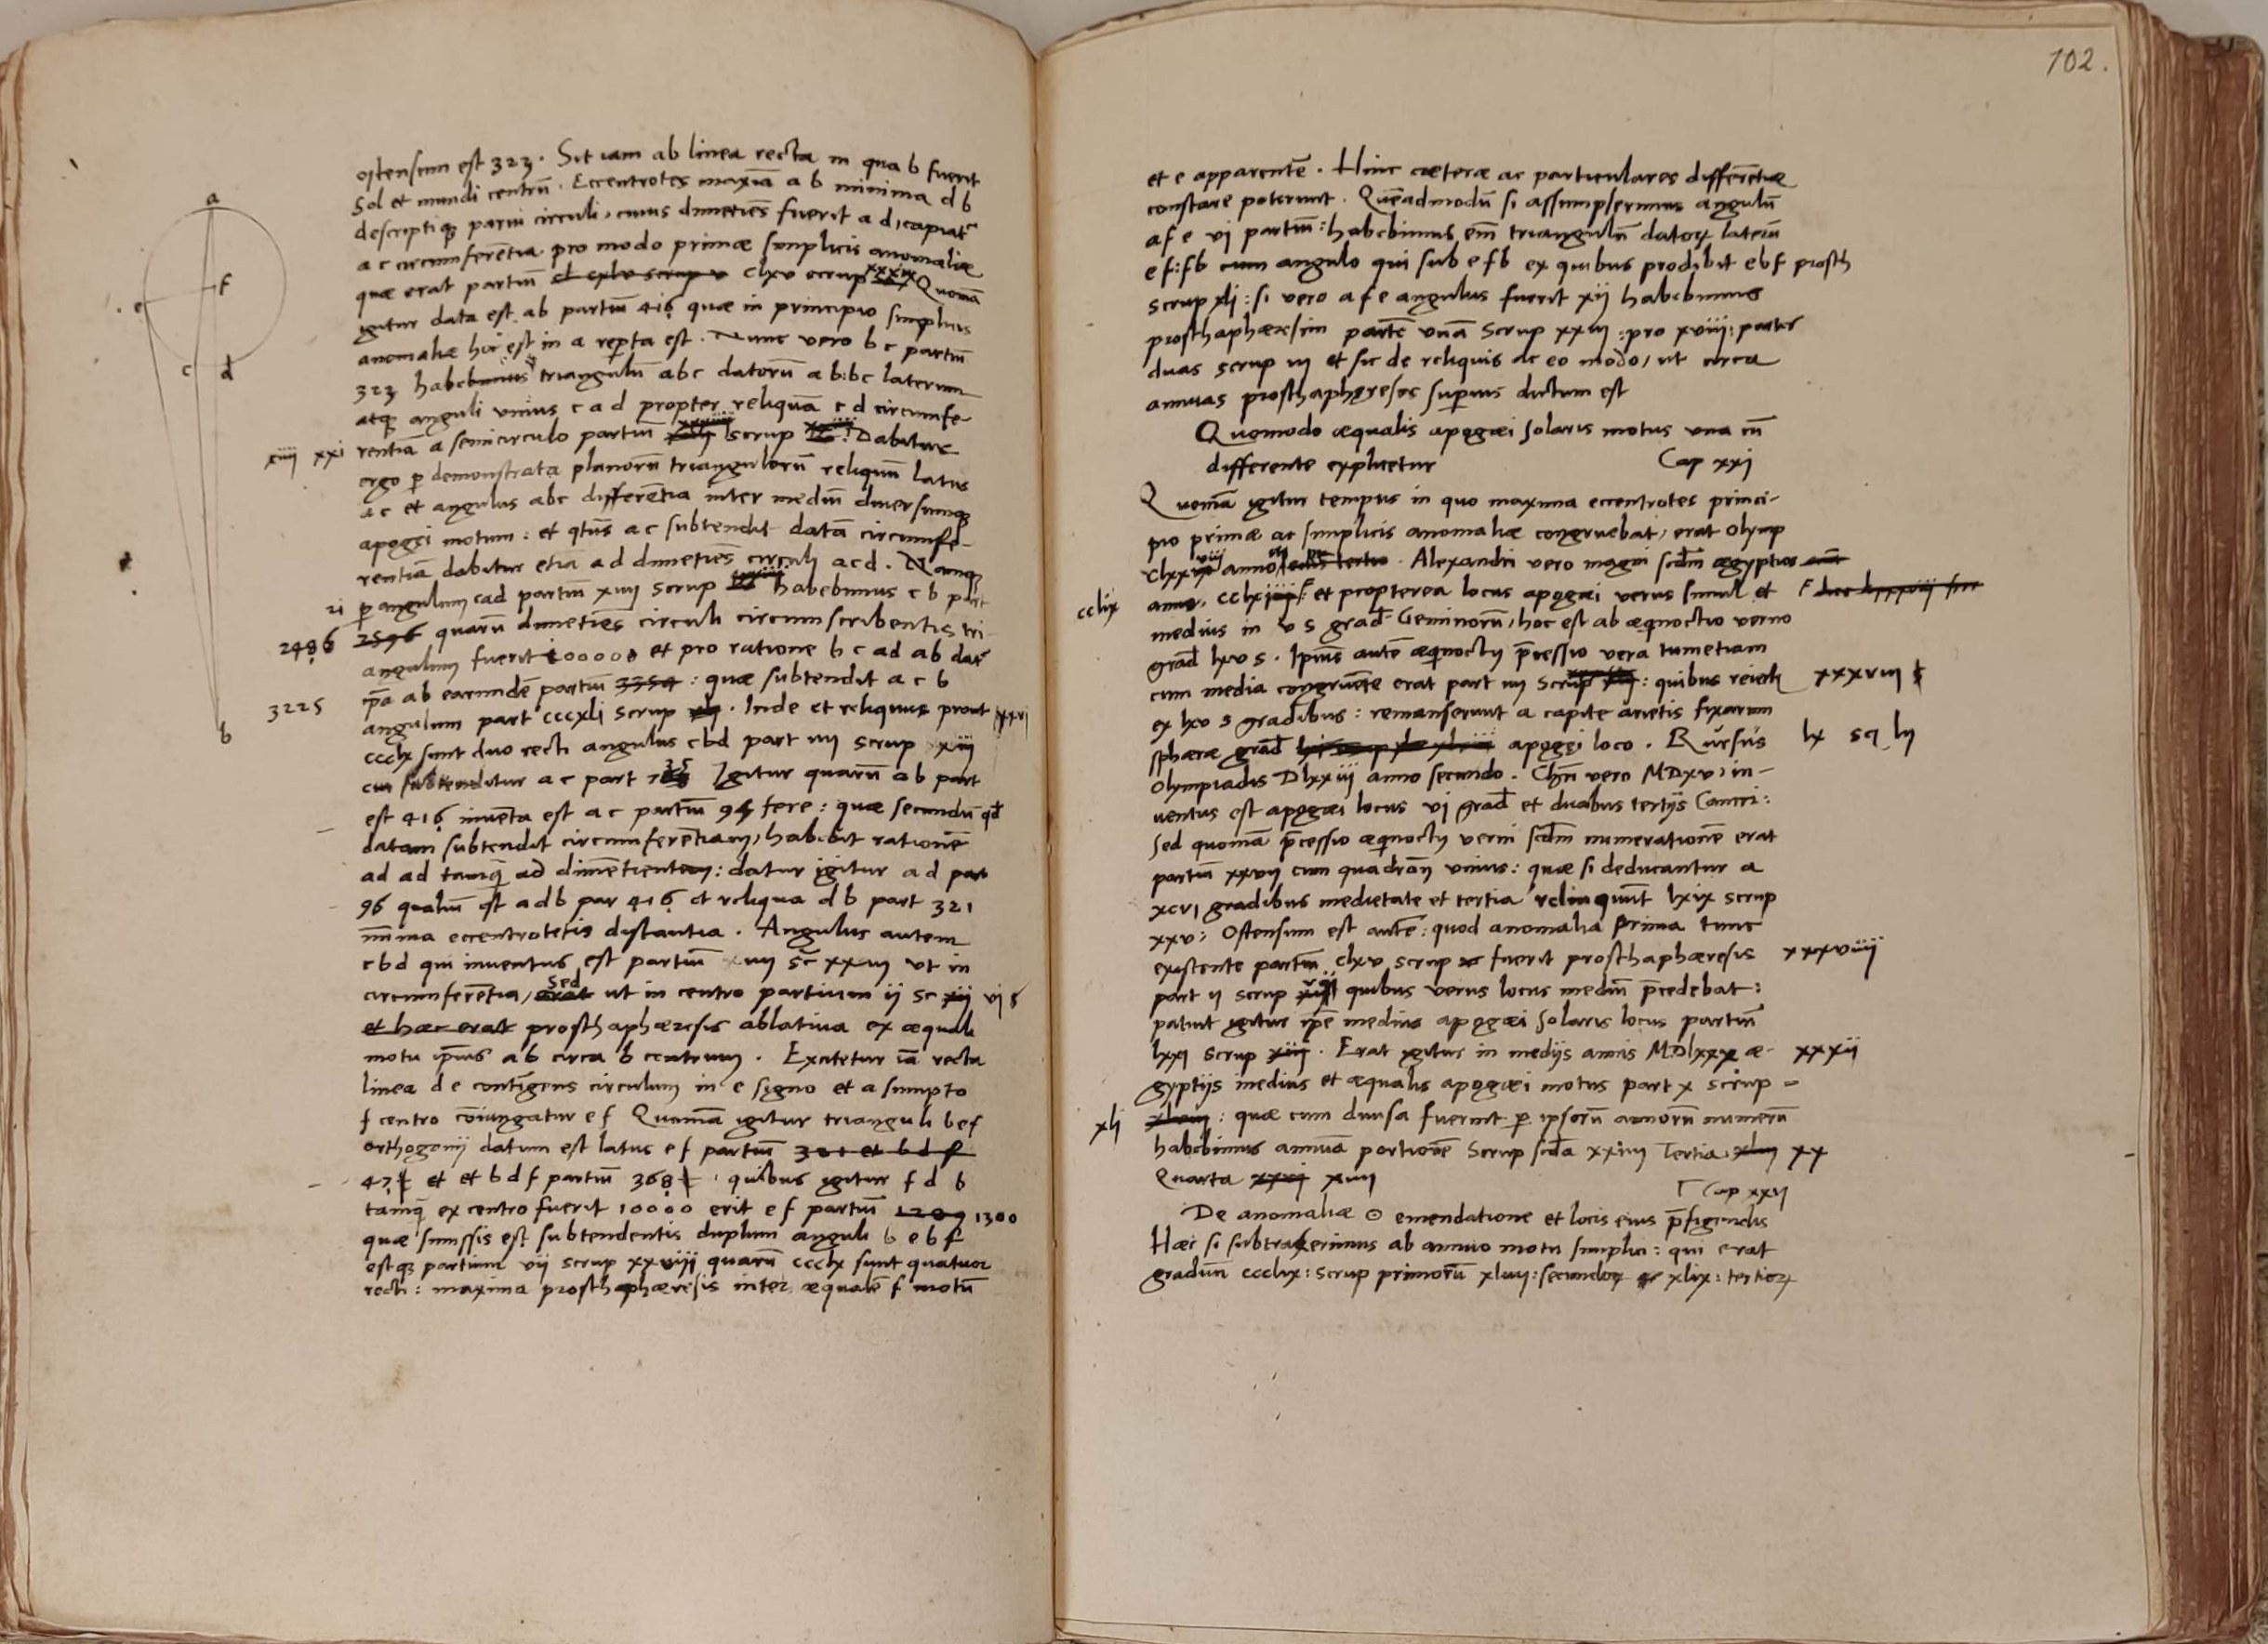 a
f
e
c d
b
ostensum est 323. Sit iam ab linea recta in qua b fuerit
Sol et mundi centrū. Eccentrotes maxīa a b minima d b
descriptiq parui circuli, cuius dimetiēs fuerit a d, capiat
a c circumferētia pro modo primæ simplicis anomaliæ
quæ erat partiū clxv scrup xxxix Quoniā
igitur data est ab partiū 416 quæ in principio simplicis
anomaliæ hoc est in a rep̄ta est. Nunc vero b c partiū
323 triangulū abc datorū a b: bc laterum
atq anguli vnius c a d propter reliquā c d circumfe-
xiiii xxi rentiā a semicirculo partiū scrup Dabitur
ergo p demonstrata planorū triangulorū reliquū latus
a c et angulus abc differētia inter mediū diuersumq
apogei motum: et qtūs a c subtendit datā circumfe-
rentiā dabitur etiā a d dimetiēs circuli acd. Namq
21 p angulum cad partiū xiiii scrup habebimus c b part
2486 2596 quarū dimetiēs circuli circumscribentis tri-
angulum fuerit 20000 et pro ratione b c ad ab dat
3225 ip̄a ab earundē partiū : quæ subtendit a c b
angulum part cccxli scrup . Inde et reliquus prout xxvi
ccclx sunt duo recti angulus cbd part iiii scrup xiii
cui subtenditur a c part 735 Igitur quarū ab part
est 416 inuēta est a c partiū 95 fere: quæ secundū qd
datam subtendit circumferētiam, habebit rationē
ad ad tamq̄ ad dimētientem: datur igitur a d part
96 qualiū est a d b par 416 et reliqua d b part 321
minīma eccentrotetis distantia. Angulus autem
c b d qui inuentus est partiū iiii sc xxiii vt in
circumferētia, Sed ut in centro partium ii sc vi s
et hæc erat prosthaphæresis ablatiua ex æquali
motu ip̄ius a b circa b centrum. Excitetur iā recta
linea d e contīgens circulum in e signo et a sumpto
f centro cōiungatur e f Quoniā igitur trianguli b e f
orthogonij datum est latus e f partiū 301 et b d f
47 et et b d f partiū 368 . quibus igitur f d b
tamq̄ ex centro fuerit 10000 erit e f partiū 1209 1300
quæ semissis est subtendentis duplum anguli b e b f
estq partium vij scrup xxviij quarū ccclx sunt quatuor
recti: maxima prosthaphæresis inter æqualē f motū
102.
et e apparentē. Hinc cæteræ ac particulares differētiæ
constare poterunt. Quēadmodū si assumpserimus angulū
a f e vi partiū: habebimus em̄ triangulū datoꝝ laterū
e f: f b cum angulo qui sub e f b ex quibus prodibit e b f prosth
scrup xli: si vero a f e angulus fuerit xij habebimus
prosthaphæresim partē vnā Scrup xxiii: pro xviij: partes
duas scrup iii et sic de reliquis ac eo modo, ut circa
annuas prosthaphęreses sup̄ius dictum est
Quomodo æqualis apogæi solaris motus vna cū
differente explicetur Cap xxi
Quoniā igitur tempus in quo maxima eccentrotes princi-
pio primæ ac simplicis anomaliæ congruebat, erat olymp
anno tertio. Alexandri vero magni scdm̄ ægyptios
cclix anno. et propterea locus apogæi verus simul et
medius in v s grad Geminorū, hoc est ab æq̄noctio verno
grad lxv s. Ipius autē æq̄noctij p̄cessio vera tumetiam
cum media congruēte erat part iiii scrup : quibus reiect xxxviii s
ex lxv s gradibus: remanserunt a capite arietis fixarum
sphæræ grad apogęi loco. Rursus lx sq lij
olympiadis Dlxxiij anno secundo. Chri vero MDxv, in-
uentus est apogæi locus vi grad et duabus tertijs Cancri:
Sed quoniā p̄cessio æq̄noctij verni scdm̄ numerationē erat
partiū xxvij cum quadran vnius: quæ si deducantur a
xcvi gradibus medietate et tertia relinquūt lxix scrup
xxv: Ostensum est autē: quod anomalia prima tunc
existente partiū clxv scrup fuerit prosthaphæresis xxxviiij
part ij scrup quibus verus locus mediū p̄cedebat:
patuit igitur ip̄e medius apogæi solaris locus partiū
lxxi scrup xiij. Erat igitur in medijs annis MDlxxx æ- xxxij
gyptijs medius et æqualis apogæi motus part x scrup =
xli : quæ cum diuisa fuerint p ipsorū annorū numerū
habebimus annuā portionē Scrup scda xxiiii Tertia xx
Quarta xxvi xiiii
Cap xxii
De anomaliæ ☉ emendatione et locis eius p̄figendis
Hæc si subtraxerimus ab annuo motu simplici: qui erat
graduū ccclix: scrup primorū xliiij: secundoꝝ xlix: tertioꝝ